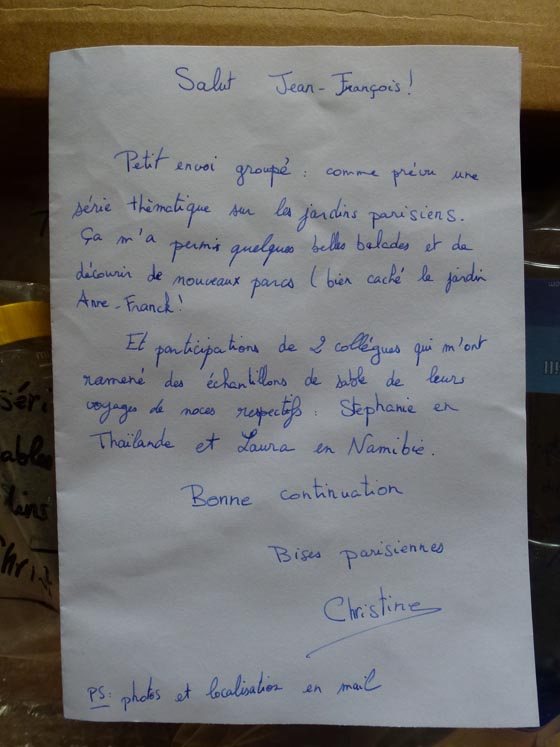 Salut Jean-François!
Petit envoi groupé : comme prévu une
série thèmatique sur les jardins parisiens.
Ça m'a permis quelques belles balades et de
découvrir de nouveaux parcs (bien caché le jardin
Anne-Franck!
Et participations de 2 collégues qui m'ont
ramené des échantillons de sable de leurs
voyages de noces respectifs : Stéphanie en
Thaïlande et Laura en Namibie.
Bonne continuation
Bises parisiennes
Christine
PS: photos et localisation en mail
séri